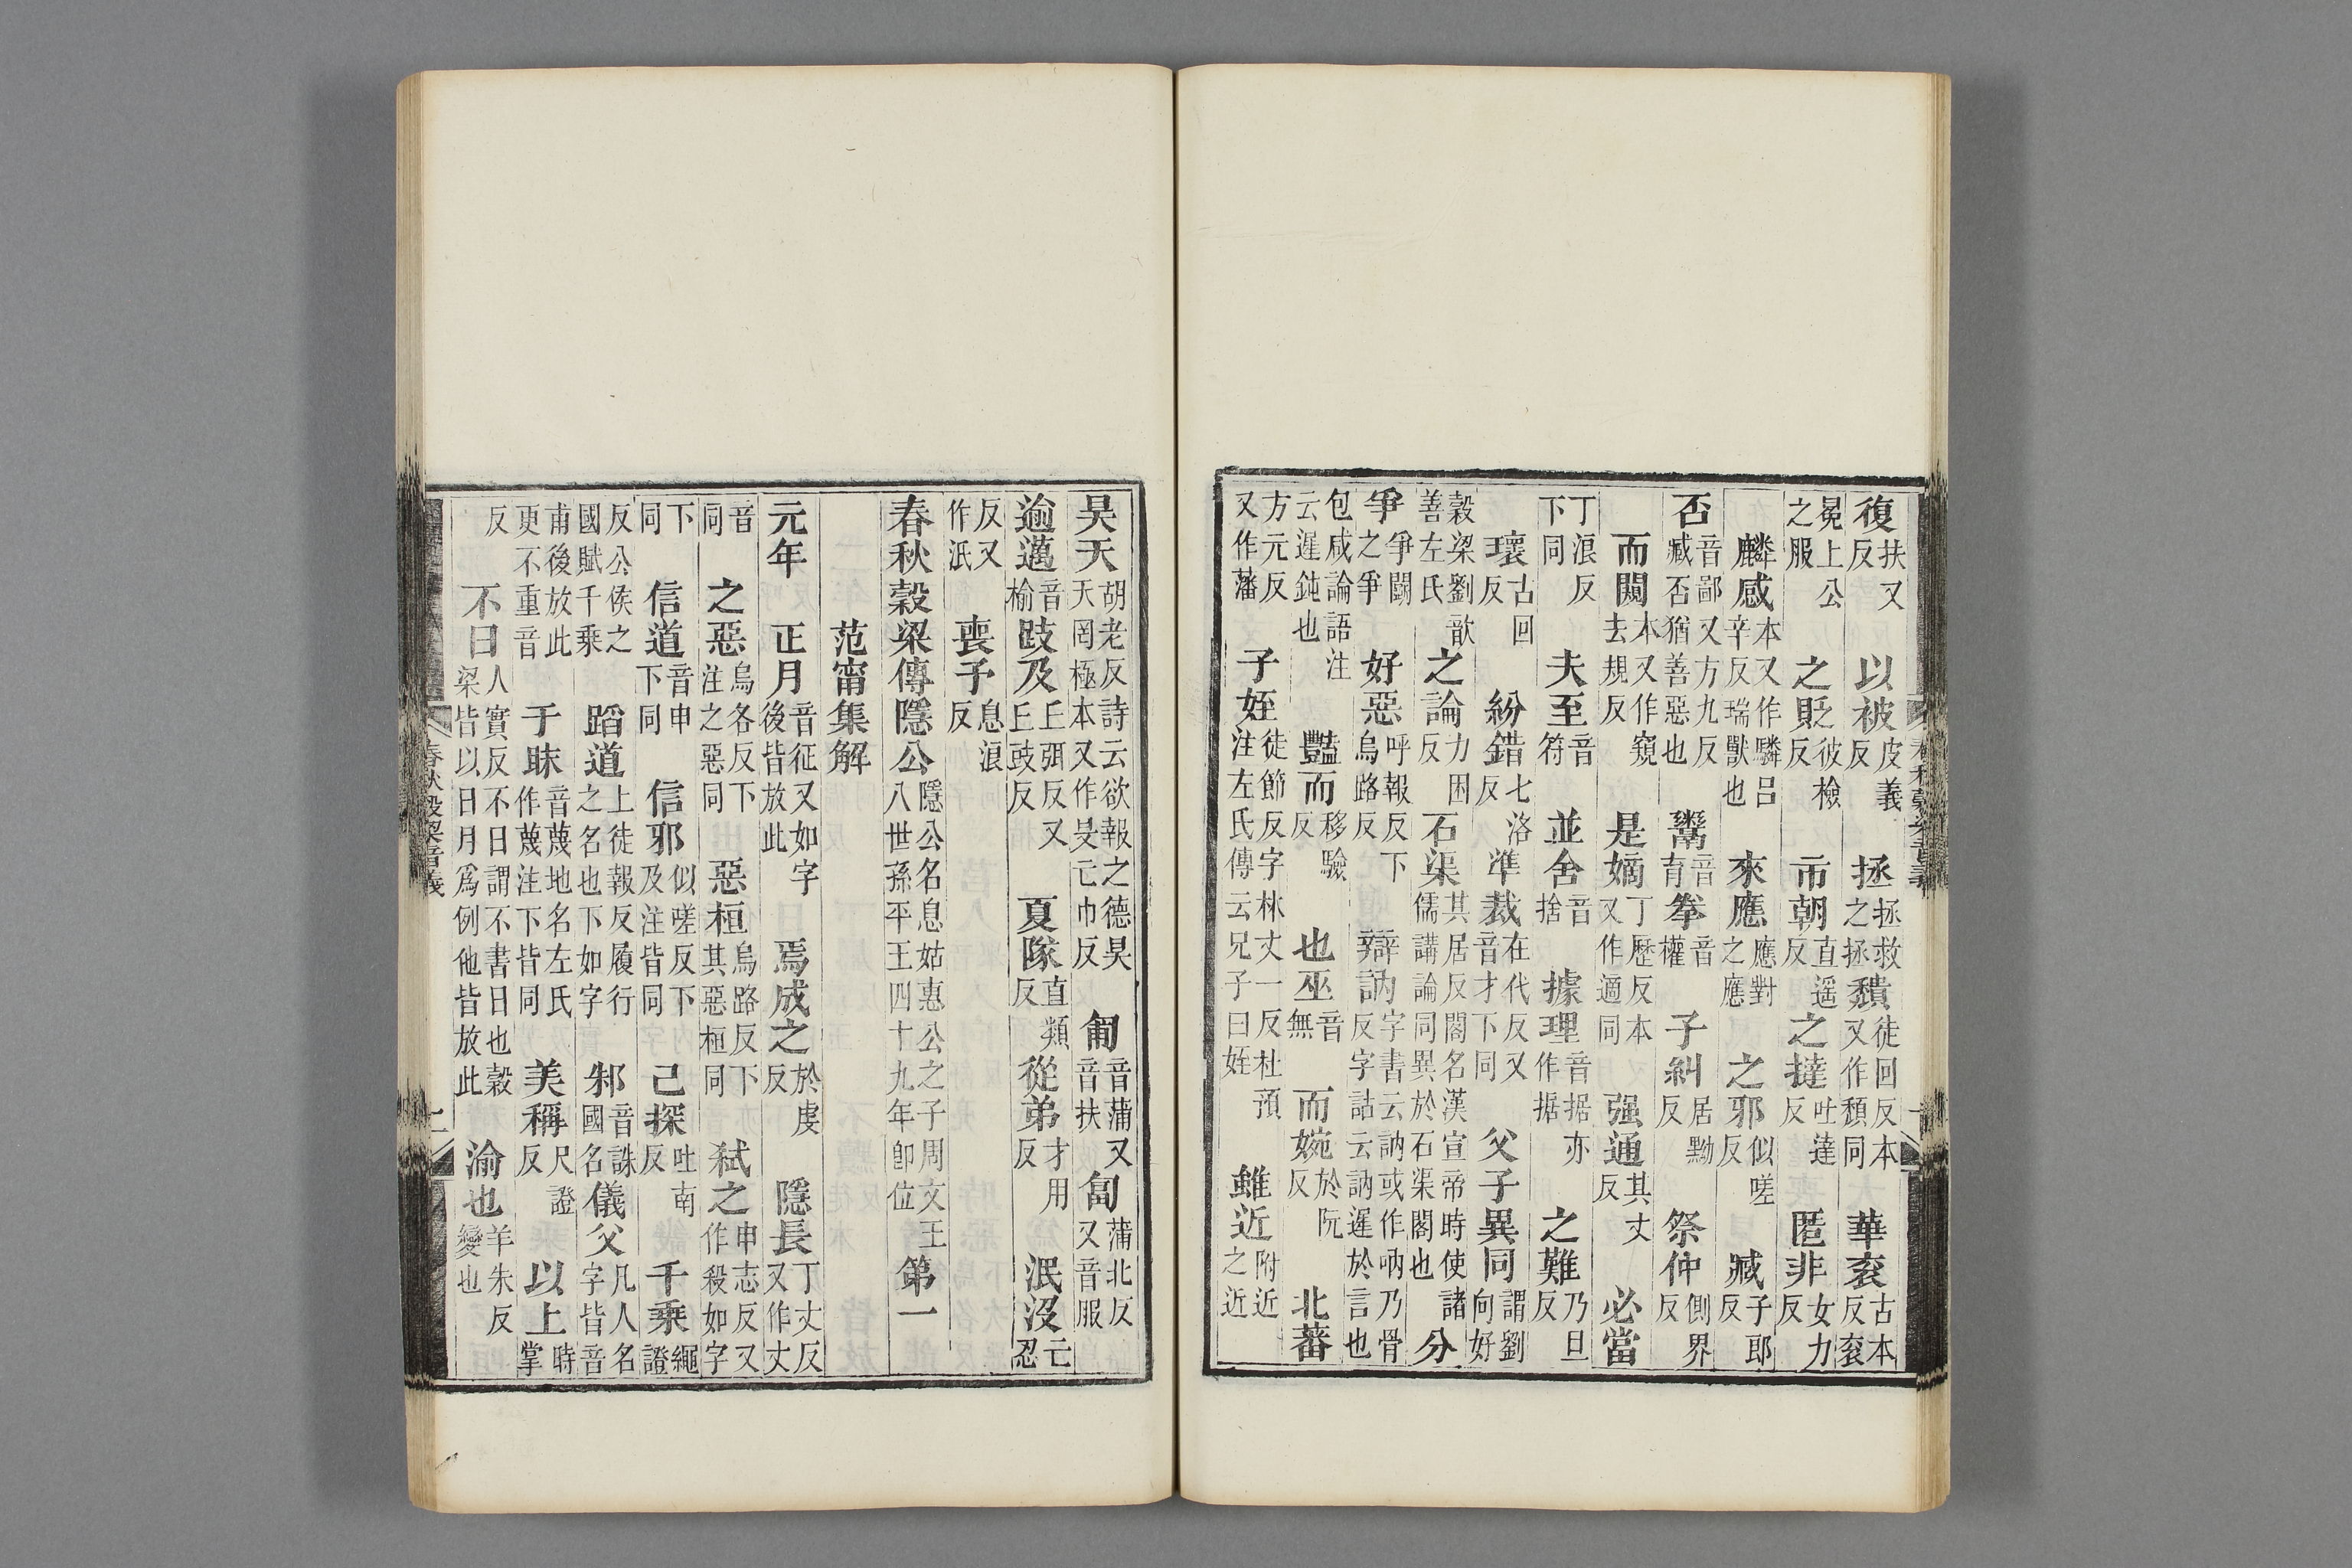 復扶又反 以被皮義反 拯拯救之拯 穨徒回反本又作頹同 華袞古本反袞
冕上公之服 之貶彼檢反 市朝直遥反 之撻吐達反 匿非女力反
麟感本又作驎吕辛反瑞獸也 來應應對之應 之邪似嗟反 臧子郎反
否音鄙又方九反臧否猶善惡也 鬻音育 拳音權 子糾居黝反 祭仲側界反
而闚本又作窺去規反 是嫡丁歷反本又作適同 强通其丈反 必當
丁浪反下同 夫至音符 並舍音捨 據理音据亦作据 之難乃旦反
壞古回反 紛錯七洛反 準裁在代反又音才下同 父子異同謂劉向好
穀梁劉歆善左氏 之論力困反 石渠其居反閣名漢宣帝時使諸儒講論同異於石渠閣也 分
爭爭鬭之爭 好惡呼報反下烏路反 辯訥字書云訥或作吶乃骨反字詁云訥遲於言也
包咸論語注云遲鈍也 豔而移驗反 也巫音無 而婉於阮反 北蕃
方元反又作藩 子姪徒節反字林丈一反杜預注左氏傳云兄子曰姪 雖近附近之近
春秋穀梁音義
昊天胡老反詩云欲報之德昊天罔極本又作旻亡巾反 匍音蒲又音扶 匐蒲北反又音服
逾邁音榆 跂及丘弭反又丘豉反 夏隊直類反 從弟才用反 泯没亡忍
反又作泯 喪子息浪反
春秋穀梁傳隱公隱公名息姑惠公之子周文王八世孫平王四十九年卽位 第一
范甯集解
元年 正月音征又如字後皆放此 焉成之於虔反 隱長丁丈反又作丈
音同 之惡烏各反下注之惡同 惡桓烏路反下其惡桓同 弑之申志反又作殺如字
下同 信道音申下同 信邪似嗟反下及注皆同 己探吐南反 千乘繩證
反公侯之國賦千乘 蹈道上徒報反履行之名也下如字 邾音誅國名 儀父凡人名字皆音
甫後放此更不重音 于眛音蔑地名左氏作蔑注下皆同 美稱尺證反 以上時掌
反 不日人實反不日謂不書日也穀梁皆以日月爲例他皆放此 渝也羊朱反變也
春秋穀梁音義 二